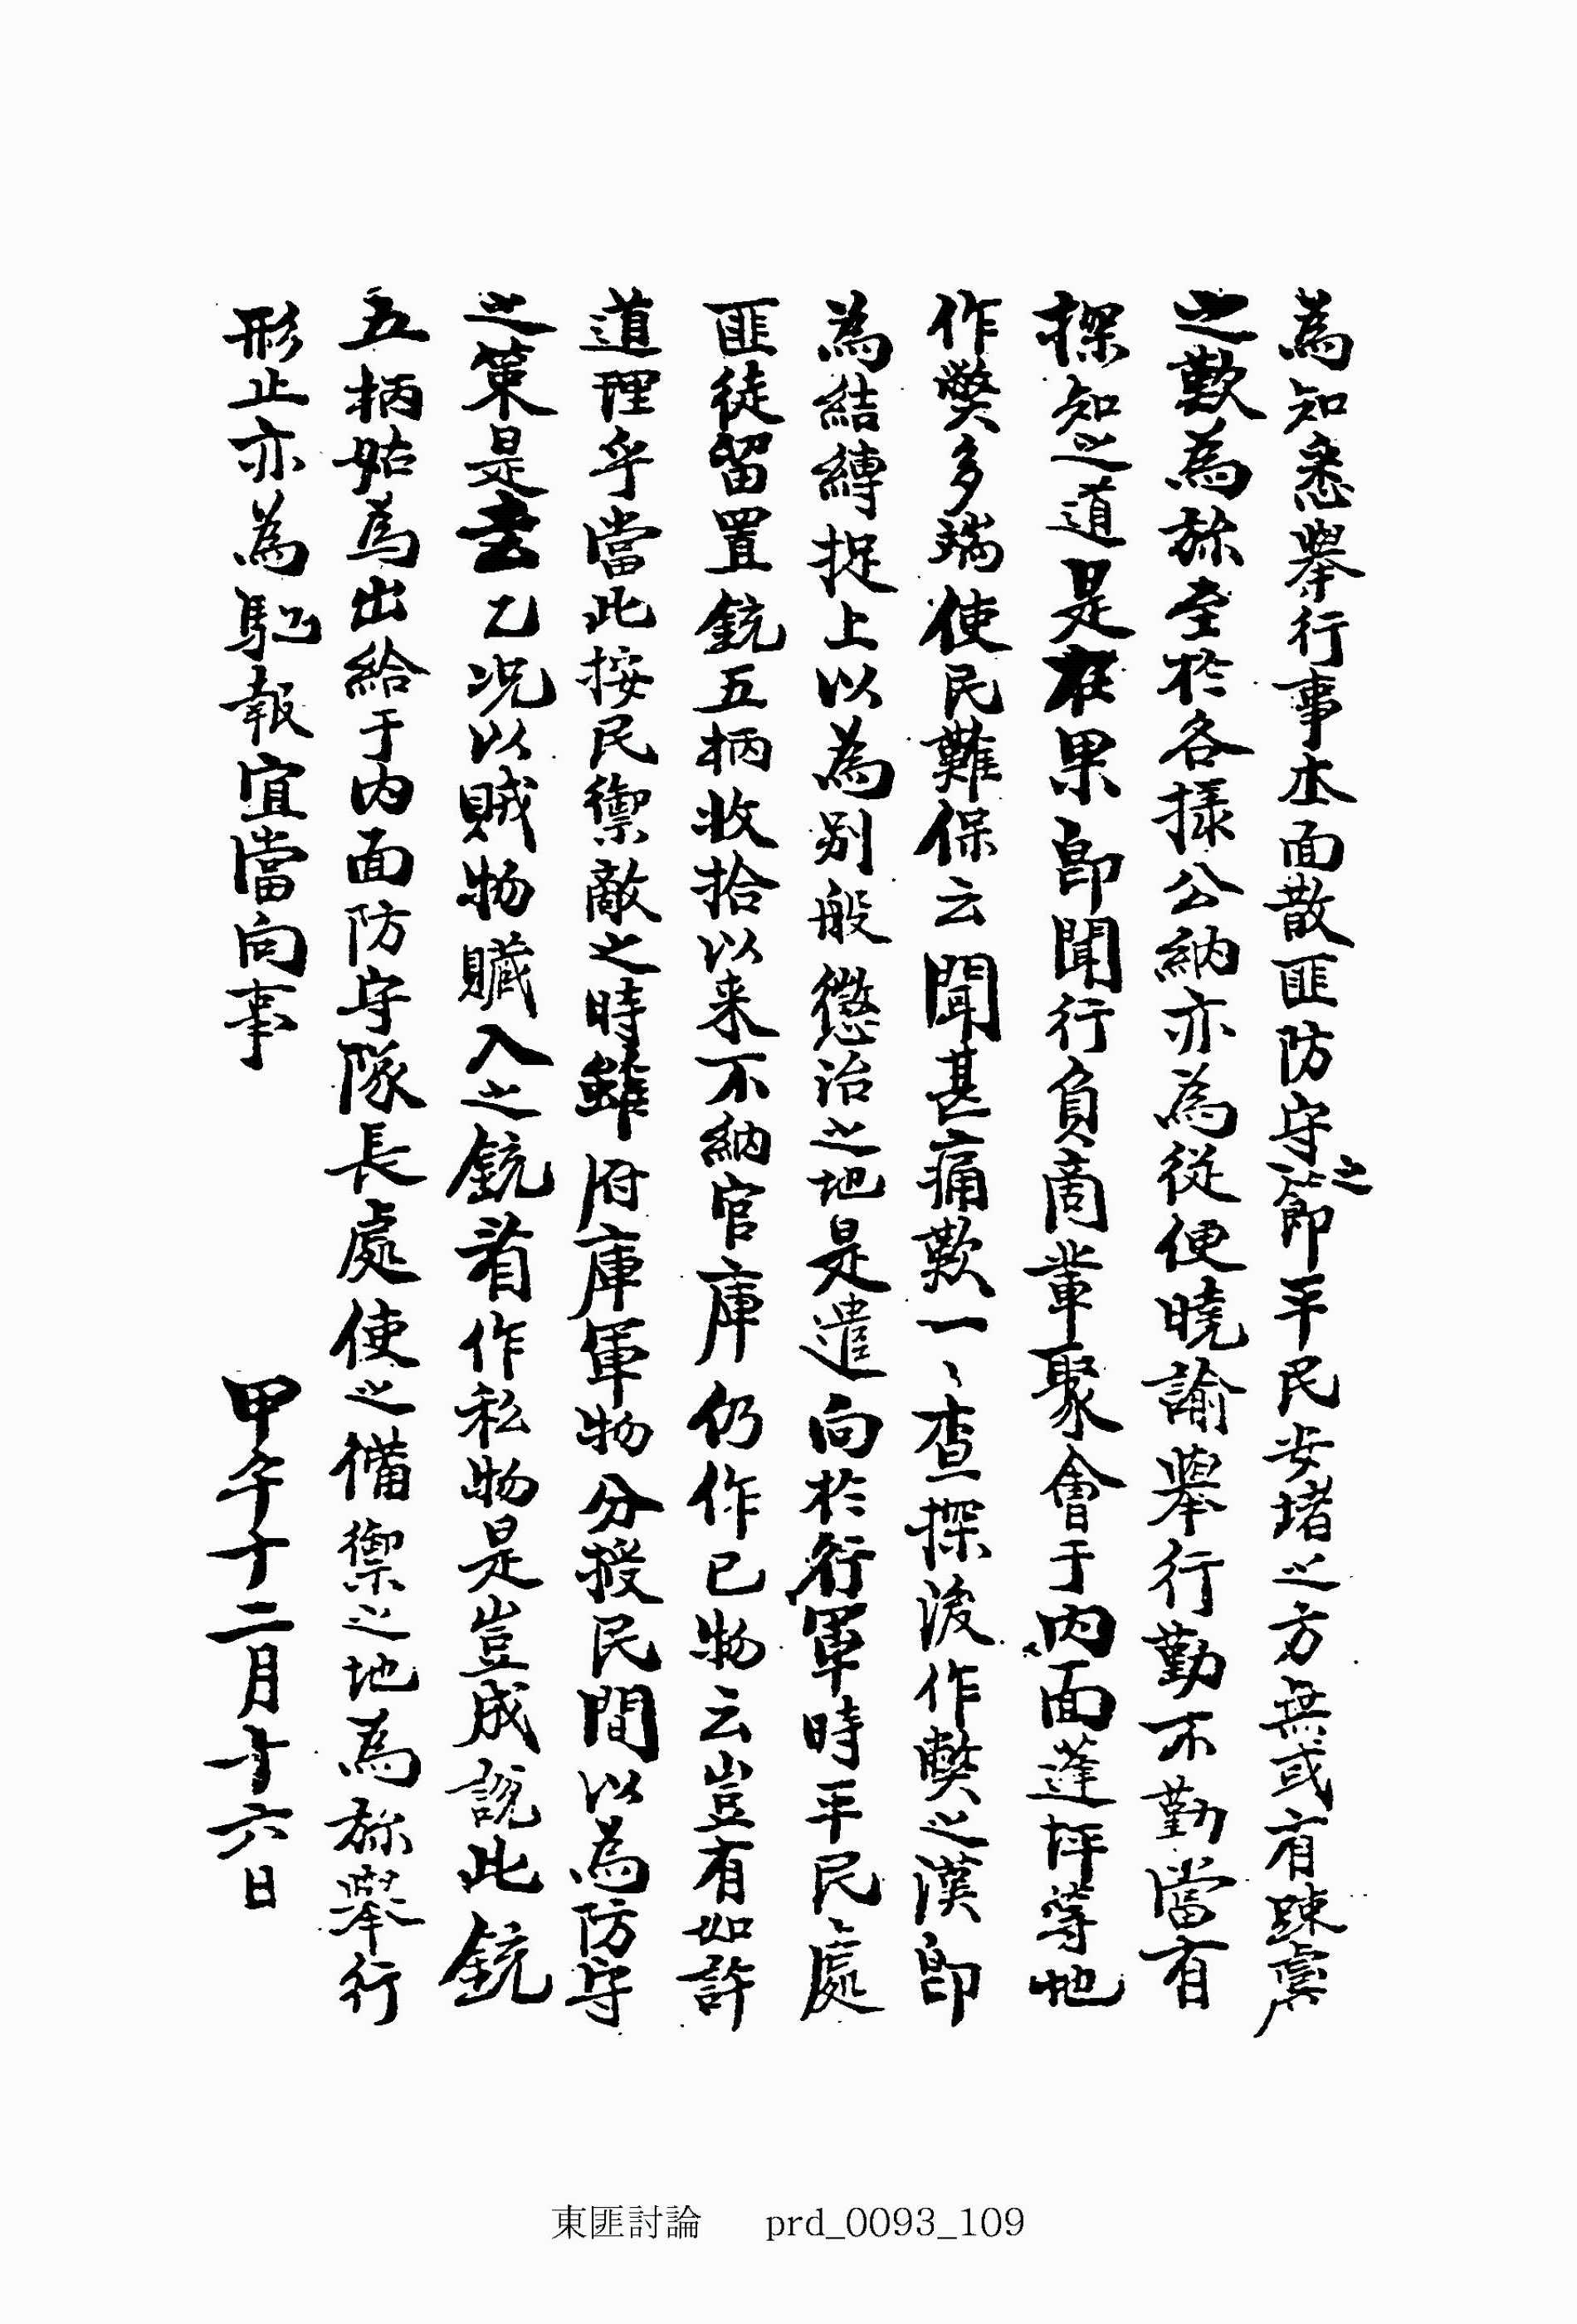 為知悉擧行事本面散匪防守之節平民安堵之方無或有踈虞
之歎為㫆至於各樣公納亦為從便曉諭擧行勤不勤當有
探知之道是在果卽聞行負啇輩聚會于內面蓬坪等地
作獘多端使民難保云聞甚痛歎一〻查探後作弊之漢卽
為結縛捉上以為別般懲治之地是遣向於行軍時平民處
匪徒留置銃五柄收拾以来不納官庫仍作已物云豈有如許
道理乎當此按民禦敵之時雖府庫軍物分授民間以為防守
之策是去乙况以賊物贓入之銃着作私物是豈成說此銃
五柄姑為出給于內面防守隊長處使之備禦之地為㫆擧行
形止亦為馳報宜當向事
甲午十二月十六日
東匪討論 prd_0093_109